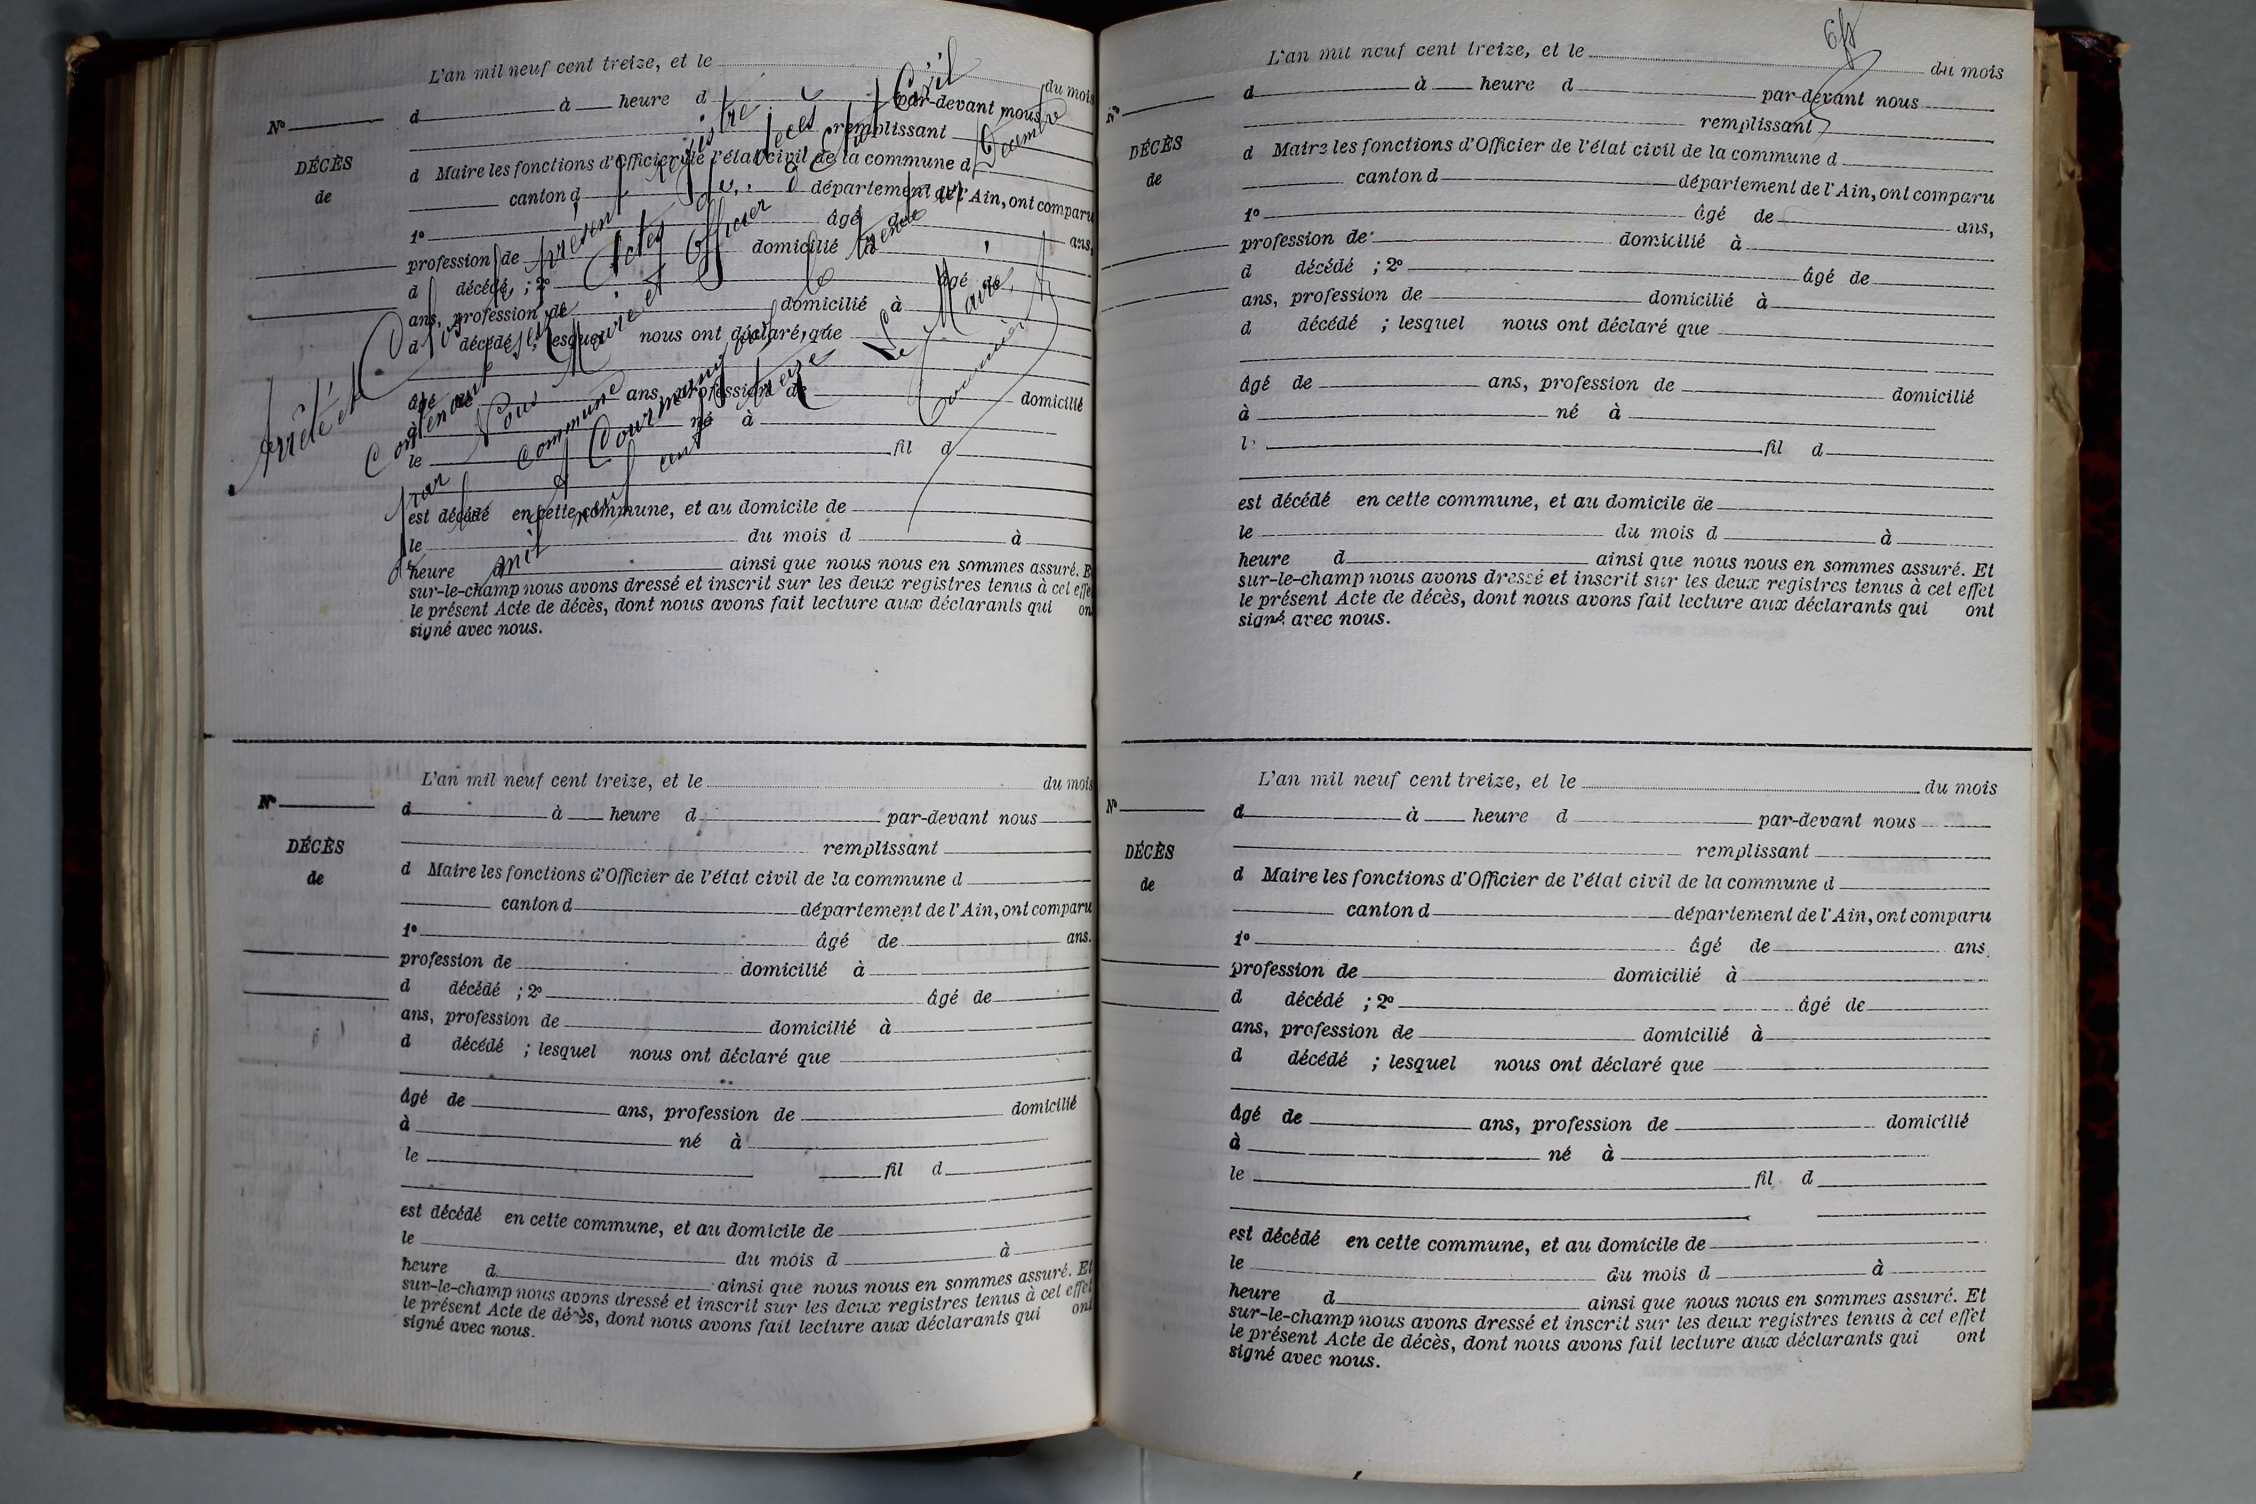 L'an mil neuf cent treize, et le du mois
d à heure d par-devant nous
remplissant
d Maire les fonctions d'Officier de l'état civil de la commune d
canton d département de l'Ain, ont comparu
1º âgé de ans,
profession de domicilié à
d décédé ; 2º âgé de
ans, profession de domicilié à
d décédé ; lesquel nous ont déclaré que
âgé de ans, profession de domicilié
à né à
le fil d
est décédé en cette commune, et au domicile de
le du mois d à
heure d ainsi que nous nous en sommes assuré. E
sur-le-champ nous avons dressé et inscrit sur les deux registres tenus à cet effe
le présent Acte de décès, dont nous avons fait lecture aux déclarants qui on
signé avec nous.
Nº
DÉCÈS
de
Arrêté et Clos le présent registre
Contenant les Actes de décès
par Nous Maire et Officier de l'État Civil
de commune de Courmangoux le trente un Décembre
mil neuf cent treize
Le Maire,
L'an mil neuf cent treize, et le du mois
d à heure d par-devant nous
remplissant
d Maire les fonctions d'Officier de l'état civil de la commune d
canton d département de l'Ain, ont comparu
1º âgé de ans.
profession de domicilié à
d décédé ; 2º âgé de
ans, profession de domicilié à
d décédé ; lesquel nous ont déclaré que
âgé de ans, profession de domicilié
à né à
le fil d
est décédé en cette commune, et au domicile de
le du mois d à
heure d ainsi que nous nous en sommes assuré. Et
sur-le-champ nous avons dressé et inscrit sur les deux registres tenus à cet effet
le présent Acte de décès, dont nous avons fait lecture aux déclarants qui ont
signé avec nous.
Nº
DÉCÈS
de
L'an mil neuf cent treize, et le du mois
d à heure d par-devant nous
remplissant
d Maire les fonctions d'Officier de l'état civil de la commune d
canton d département de l'Ain, ont comparu
1º âgé de ans,
profession de domicilié à
d décédé ; 2º âgé de
ans, profession de domicilié à
d décédé ; lesquel nous ont déclaré que
âgé de ans, profession de domicilié
à né à
le fil d
est décédé en cette commune, et au domicile de
le du mois d à
heure d ainsi que nous nous en sommes assuré. Et
sur-le-champ nous avons dressé et inscrit sur les deux registres tenus à cet effet
le présent Acte de décès, dont nous avons fait lecture aux déclarants qui ont
signé avec nous.
Nº
DÉCÈS
de
L'an mil neuf cent treize, et le du mois
d à heure d par-devant nous
remplissant
d Maire les fonctions d'Officier de l'état civil de la commune d
canton d département de l'Ain, ont comparu
1º âgé de ans.
profession de domicilié à
d décédé ; 2º âgé de
ans, profession de domicilié à
d décédé ; lesquel nous ont déclaré que
âgé de ans, profession de domicilié
à né à
le fil d
est décédé en cette commune, et au domicile de
le du mois d à
heure d ainsi que nous nous en sommes assuré. Et
sur-le-champ nous avons dressé et inscrit sur les deux registres tenus à cet effet
le présent Acte de décès, dont nous avons fait lecture aux déclarants qui ont
signé avec nous.
Nº
DÉCÈS
de